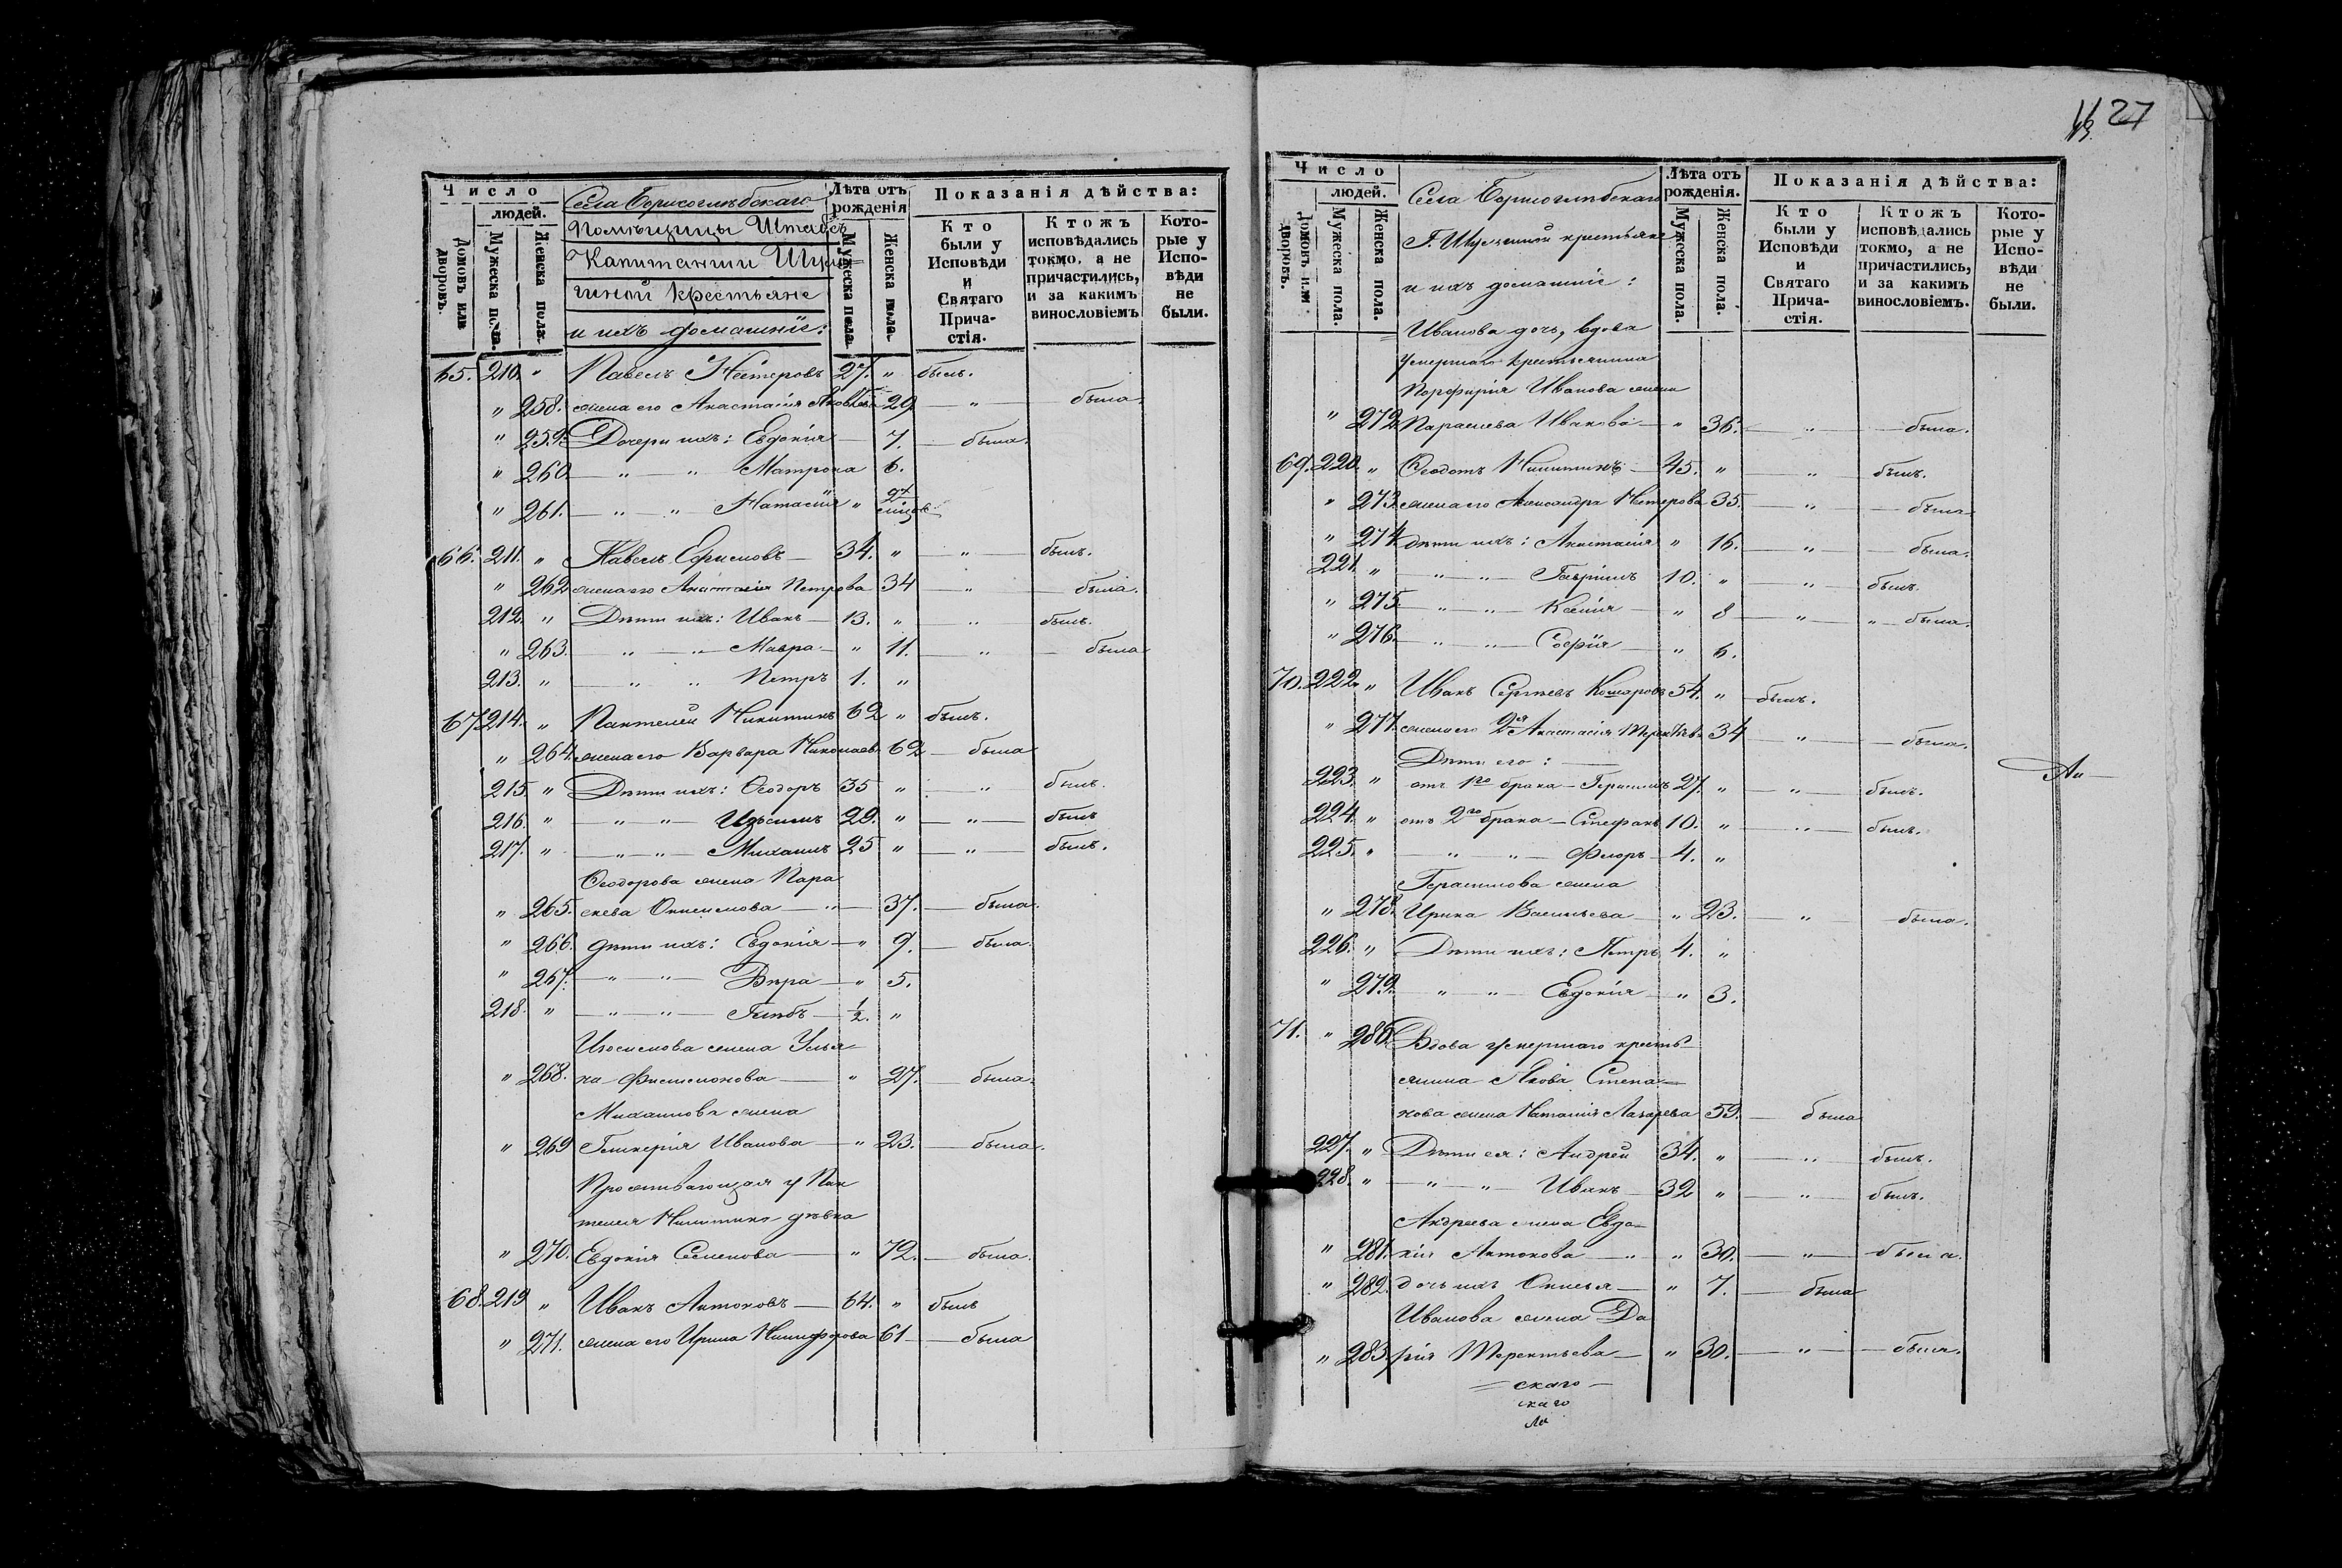 Число
людей.
Домовъ или дворовъ.
Мужеска пола.
Женска пола.
Села Борисоглѣбскаго
помѣщицы Штабсъ
Капитанши
гиной крестьяне
и ихъ домашніе:
Лѣта отъ рожденія
Мужеска пола.
Женска пола.
Показанія дѣйства:
Кто были у Исповѣди и Святаго Причастія.
Ктожъ исповѣдались токмо, а не причастились, и за какимъ винословіемъ
Которые у Исповѣди не были.
65. 210. " Павелъ Нестеровъ 27. " былъ.
" 258. жена его Анастасія Яковлева 29 — " — была.
" 259. Дочери ихъ: Евдокія — 7. — была.
" 260. — " — " Матрона 6.
" 261. — " — " Наталія "
66. 211. " Павелъ Ефимовъ — 34. " — " — былъ.
" 262 жена его Анастасія Петрова 34 — " — была.
212. " Дѣти ихъ: Иванъ — 13. " — " — былъ.
" 263. — " — " — Мавра — " 11. — " — была
213. " — " " Петръ 1. "
67. 214. " Пантелей Никитинъ 62 " былъ.
" 264. жена его Варвара Николаев. 62 — была
215. " Дѣти ихъ: Ѳеодоръ 35 " — " — былъ.
216. " — " — " — Изосимъ 29. " — " — былъ
217. " — " — " — Михаилъ 25 " — " — былъ.
Ѳеодорова жена Пара
" 265. скева Онисимова — " — 37. — была.
" 266. дѣти ихъ: Евдокія — " 9. — была.
" 267. — " — " — Вѣра — " 5.
218. " — " — " — Глѣбъ — 1/2. "
Изосимова жена Улья-
" 268. на Филимонова — " 27. — была.
Михаилова жена
" 269 Гликерія Иванова — " 23. — была.
Проживающая у Пан
телея Никитина дѣвка
" 270. Евдокія Семенова — " 72. — была.
68. 219 " Иванъ Антоновъ — 64. " былъ
" 271. жена его Ирина Никифорова 61 — была
27
Число
людей.
Домовъ или дворовъ.
Мужеска пола.
Женска пола.
Села Борисоглѣбскаго
крестьяне
и ихъ домашніе:
Лѣта отъ рожденія.
Мужеска пола.
Женска пола.
Показанія дѣйства:
Кто были у Исповѣди и Святаго Причастія.
Ктожъ исповѣдались токмо, а не причастились, и за какимъ винословіемъ.
Которые у Исповѣди не были.
Иванова дочь, вдова
умершаго крестьянина
Порфирія Иванова жена
" 272 Параскева Иванова — " 36. — " — была.
69. 220. " Ѳеодотъ Никитинъ — 45. " " былъ.
" 273. жена его Александра Нестерова 35. — " — была
" 274. дѣти ихъ: Анастасія " 16. — " — была.
221. " — " — " — Гавріилъ 10. " — " — былъ.
" 275. — " — " — Ксенія — " 8 — " — " — была.
" 276. — " — " — Софія — " 6.
70. 222. " Иванъ Сергѣевъ Комаровъ 54. " былъ.
" 277. жена его 2я Анастасія 34 — " — была.
Дѣти его: —
223. " отъ 1го брака — Герасимъ 27. " — " — былъ.
224. " отъ 2го брака — Стефанъ 10. " — " — былъ.
225. " — " — " — Флоръ — 4. "
Герасимова жена
" 278. Ирина Васильева — " 23. — " — была.
226. " Дѣти ихъ: Петръ 4. "
" 279. " — " — Евдокія — " 3.
71. " 280. Вдова умершаго кресть-
янина Якова Степа-
нова жена Наталія Лазарева 59. — была
227. " Дѣти ея: Андрей 34. " — " — былъ.
228. " — " — " — Иванъ 32 " — " — былъ.
Андреева жена Евдо-
" 281. кія Антонова — " " 30. — " — была.
" 282. дочь ихъ — " 7. — была
Иванова жена Да
" 283. рія Терентьева — " 30. — " — была.
— скаго —
скаго